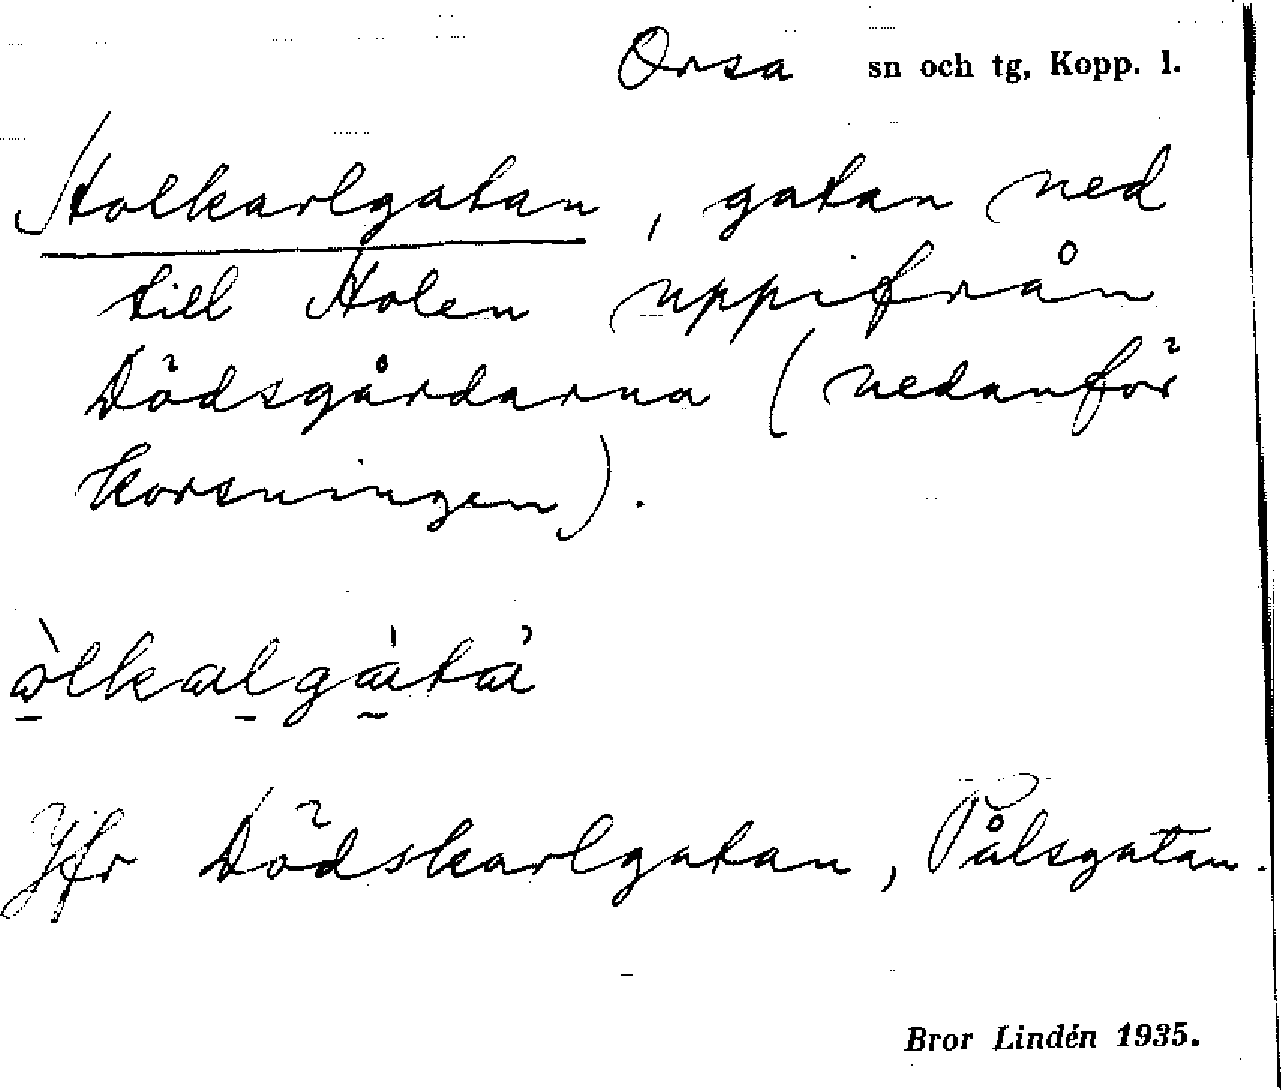 Orsa sn och tg, Kopp. l.
Holkarlgatan, gatan ned
till Holen uppifrån
Dödsgårdarna (nedanför
korsningen).
Jfr Dödskarlgatan, Pålsgatan.
Bror Lindén 1935.